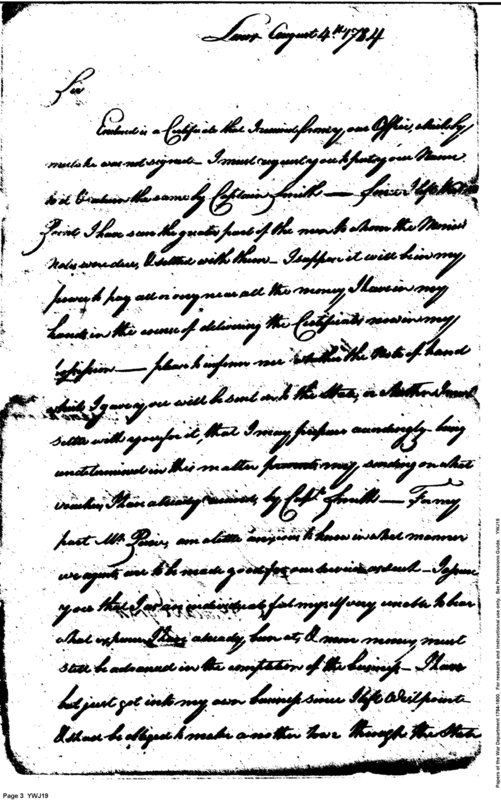 August 4th 1784
Sir
Enclosed is a Certificate that I received from your Office, which by
mistake was not signed – I must request you to put your Name
to it & return the same by Captain Smith — Since I left West
Point I have seen the greater part of the men to whom the
Notes were due, & settled with them – I suppose it will be in my
power to pay all or very near all the money I have in my
hands in the course of delivering the Certificates now in my
possession — please to inform me whether the Note of hand
which I gave you will be sent on to the State, or whether I must
settle with you for it, that I may prepare accordingly – being
undetermined in this matter prevents my sending on what
vouchers I have already by Capt. Smith — For my
part Mr. am a little anxious to know in what manner
we agents are to be made good for our services – I
you that I as an individual feel myself very unable to bear
what expence I have already been at, & more money must
still be advanced in the completion of the business – I have
but just got into my own business since I left Westpoint
& shall be obliged to make another tour through the State
Page 3 YWJ19
Papers of the War Department 1784-1800. For research and instructional use only. See Permissions Guide. YWJ19